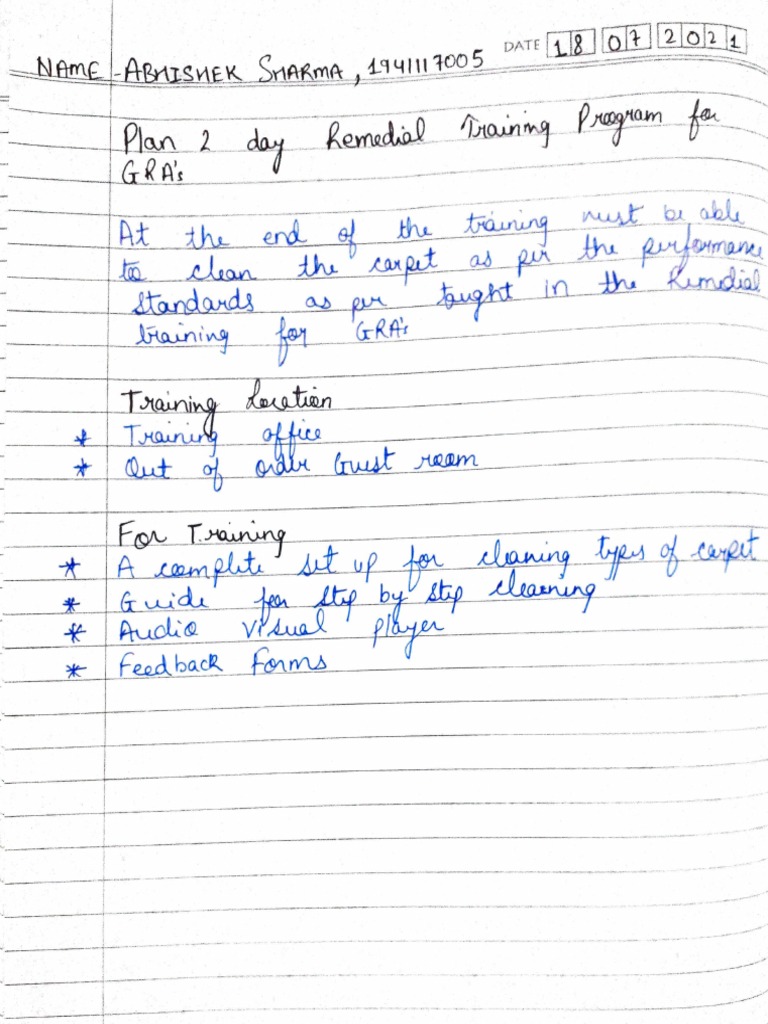 DATE 18 07 2021
NAME - ABHISHEK SHARMA, 1941117005
Plan 2 day Remedial Training Program for
GRA's
At the end of the training must be able
to clean the carpet as per the performance
standards as per taught in the Remedial
training for GRA's
Training Location
* Training office
* Out of order Guest room
For Training
* A complete set up for cleaning types of carpet
* Guide for step by step cleaning
* Audio visual player
* Feedback Forms